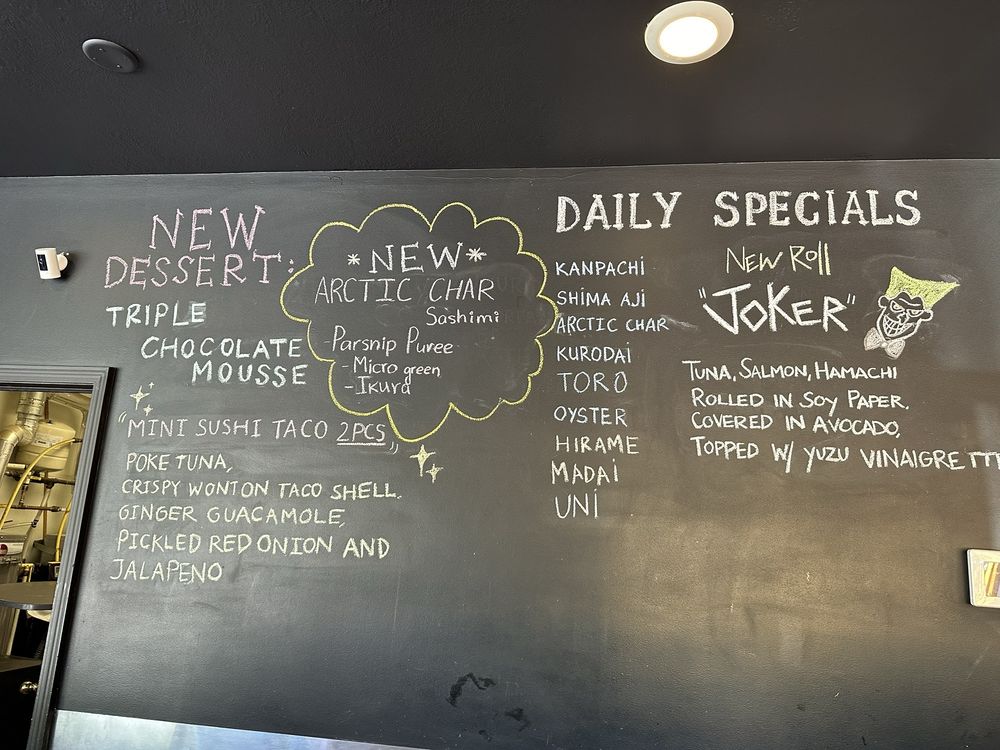 NEW
DESSERT:
TRIPLE
CHOCOLATE
MOUSSE
"MINI SUSHI TACO 2PCS"
POKE TUNA,
CRISPY WONTON TACO SHELL.
GINGER GUACAMOLE,
PICKLED RED ONION AND
JALAPENO
*NEW*
ARCTIC CHAR
Sashimi
-Parsnip Puree
-Micro green
-Ikura
DAILY SPECIALS
KANPACHI
SHIMA AJI
ARCTIC CHAR
KURODAI
TORO
OYSTER
HIRAME
MADAI
UNI
NEW ROll
"JOKER"
TUNA, SALMON, HAMACHI
ROLLED IN SOY PAPER.
COVERED IN AVOCADO,
TOPPED W/ YUZU VINAIGRETT